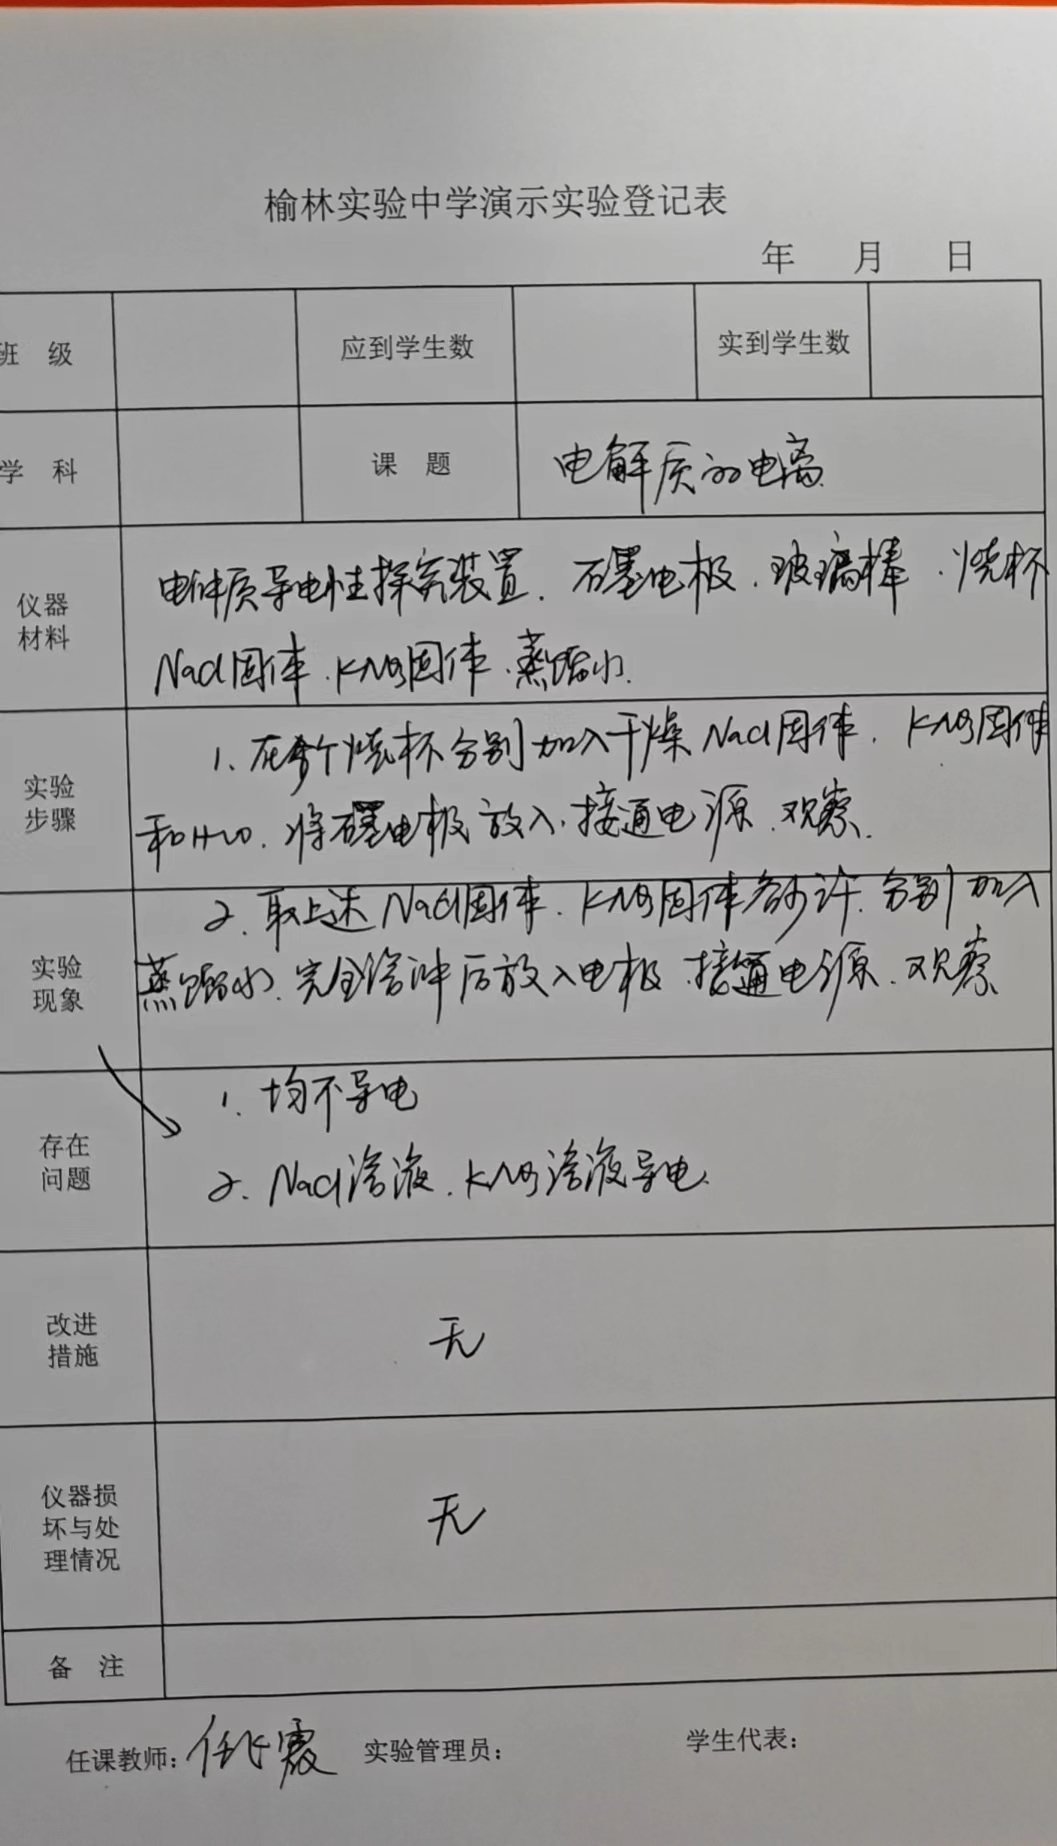 榆林实验中学演示实验登记表
年 月 日
班 级 应到学生数 实到学生数
学 科 课 题 电解质的电离
仪器
材料
电解质导电性探究装置、石墨电极、玻璃棒、烧杯
NaCl固体、KNO3固体、蒸馏水.
实验
步骤
1. 在 个烧杯分别加入干燥NaCl固体、KNO3固体
和H2O、将石墨电极放入、接通电源、观察.
实验
现象
2. 取上述NaCl固体、KNO3固体各少许、分别加入
蒸馏水、完全溶 后放入电极、接通电源、观察
存在
问题
1. 均不导电
2. NaCl溶液、KNO3溶液导电.
改进
措施
无
仪器损
坏与处
理情况
无
备 注
任课教师: 任 霞 实验管理员: 学生代表: